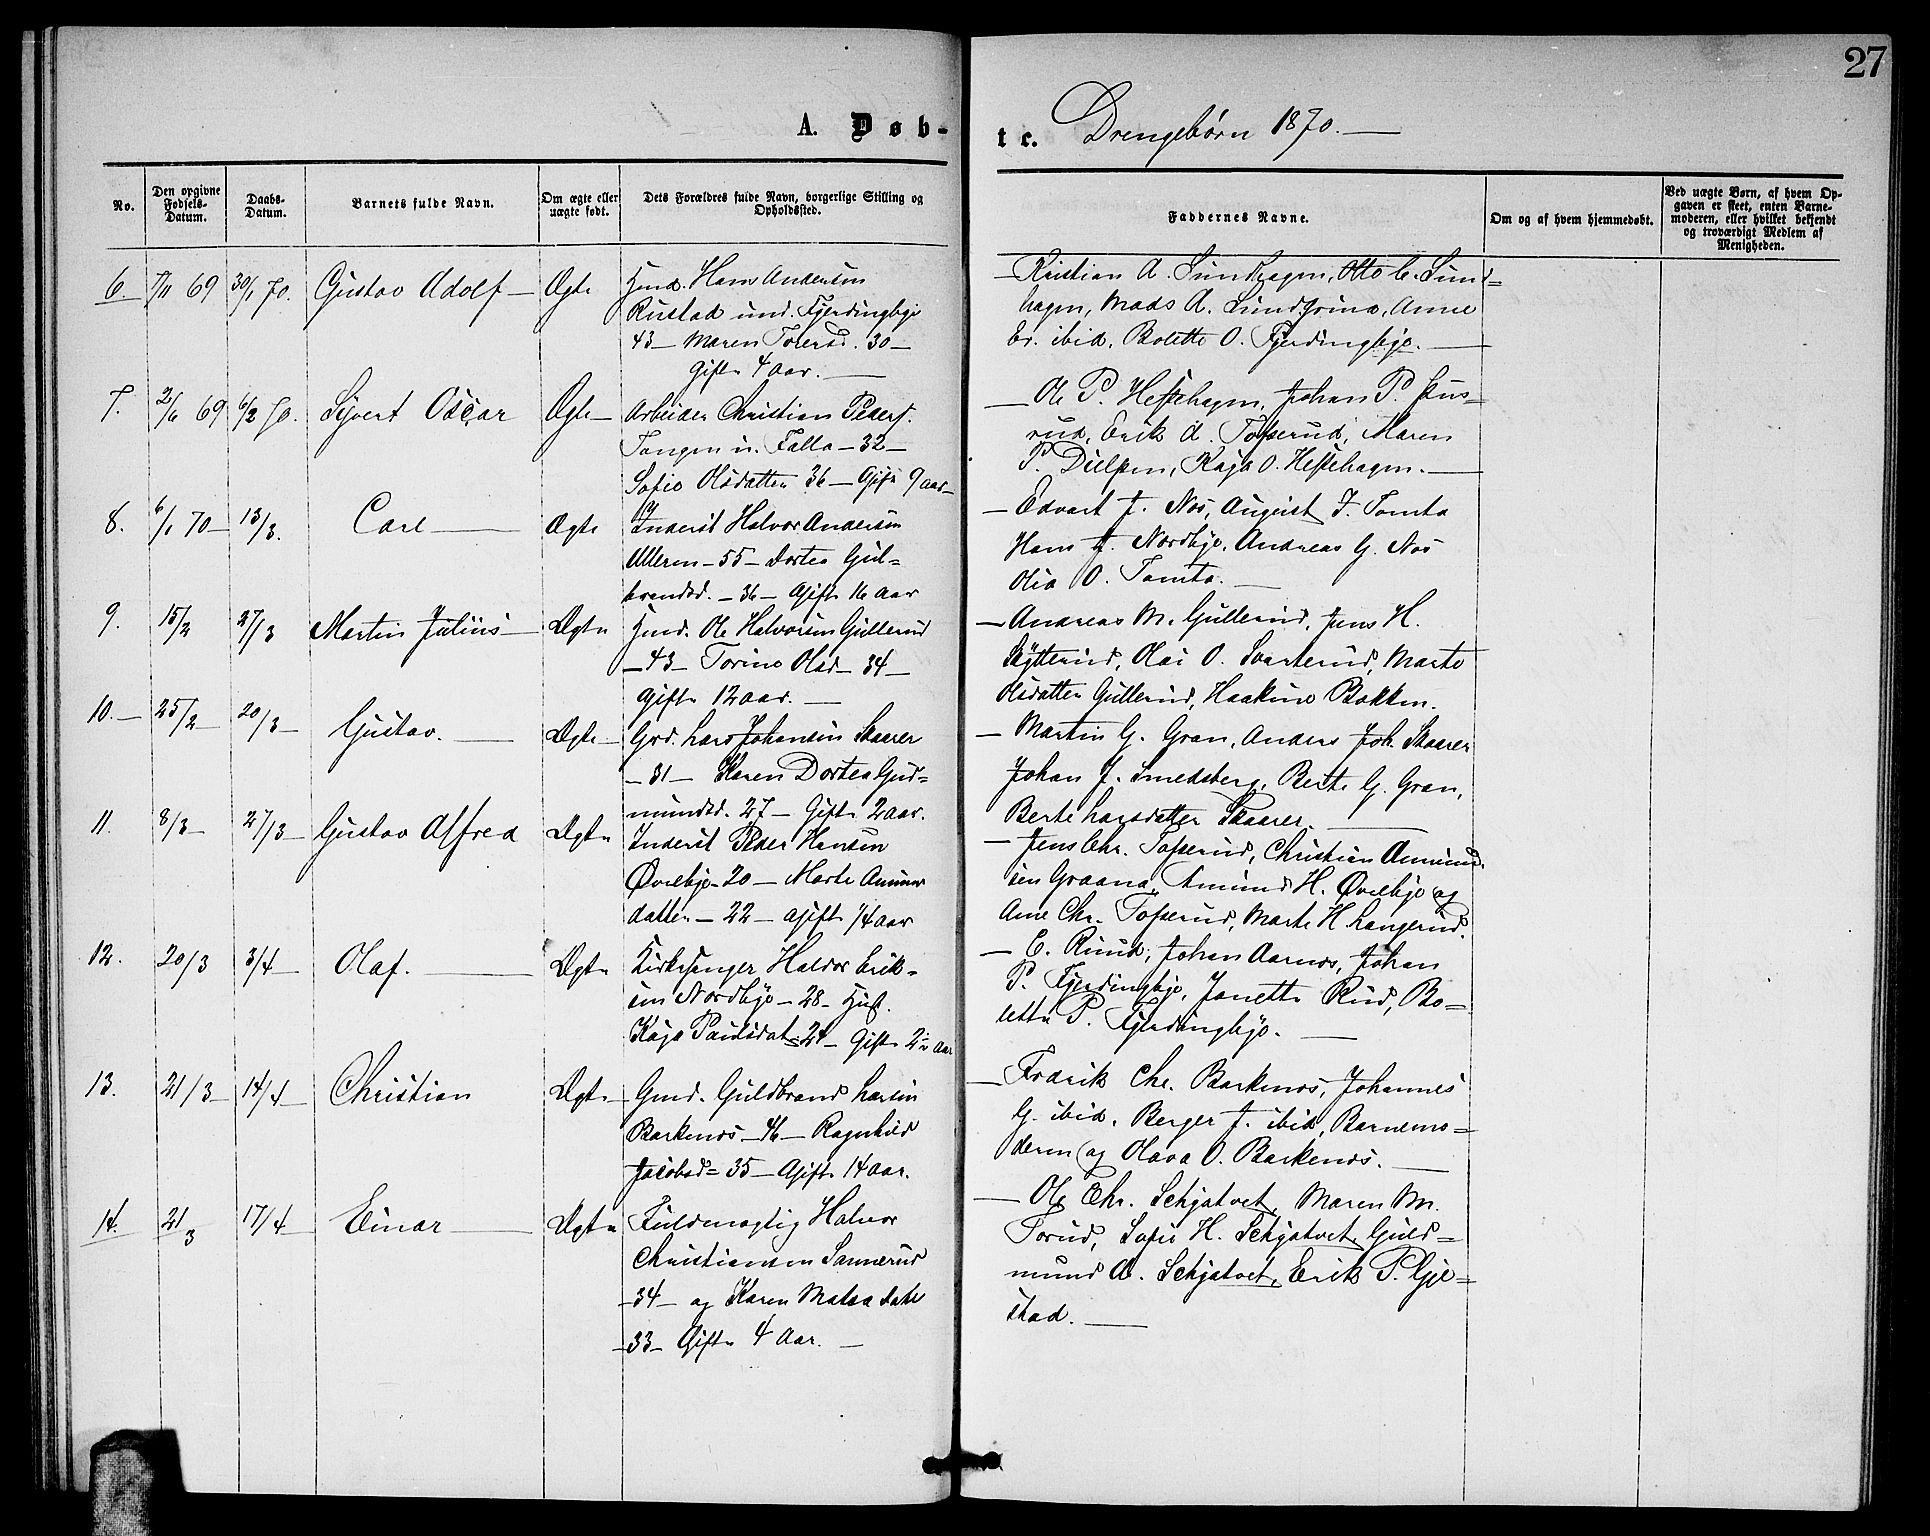 27
A. Døb-
te. Drengebørn 1870.
No.
Den opgivne Fødsels-Datum.
Daabs-Datum.
Barnets fulde Navn.
Om ægte eller uægte født.
Dets Forældres fulde Navn, borgerlige Stilling og Opholdssted.
Faddernes Navne.
Om og af hvem hjemmedøbt.
Ved uægte Børn, af hvem Op-
gaven er skeet, enten Barne-
moderen, eller hvilket bekjendt
og troværdigt Medlem af
Menigheden.
6. 7/11 69 30/1 70. Gustav Adolf Ægte Hmd. Hans Andersen
Rustad und. Fjerdingbye
43 – Maren Torersd. 30 –
Gifte 4 aar.
Kristian A. Sundhagen, Otto C. Sund=
hagen, Mads A. Sund, Anne
Er. ibid, Bolette O. Fjerdingbye.
7. 2/6 69 6/2 70. Syvert Oscar Ægte Arbeider Christian Peders.
Tangen u. Falla – 32 –
Sofie Olsdatter 36 – Gift 9 aar
Ole P. Hestehagen, Johan P. Hus-
rud, Erik A. Tofserud, Maren
P. Kaja O. Hestehagen.
8. 6/1 70 – 13/3. Carl Ægte Inderst Halvor Andersen
Ulleren – 55 – Dortea Gul=
brandsd. – 36 – Gift 16 aar
Edvart J. Nos, August J. Tomta
Hans J. Nordbye, Andreas G. Nos
Olia O. Tomta.
9. 15/2 27/3 Martin Julius Ægte Hmd. Ole Halvorsen Gullerud
– 43 – Torine Olsd – 34 –
Gifte 12 aar.
Andreas M. Gullerud, Jens H.
Skytterud, Olai O. Svarterud, Marte
Olsdatter Gullerud, Haakine Bakken.
10. 25/2 20/3 Gustav. Ægte Grd. Lars Johansen Skaarer
– 31 – Karen Dortea Gud=
mundsd. 27 – Gifte 2 aar.
Martin G. Gran, Anders Joh. Skaarer
Johan J. Smedsberg, Berte G. Gran,
Berte Larsdatter Skaarer.
11. 8/3 27/3 Gustav Alfred Ægte Inderst Peder Hansen
Øvrebye – 20 – Marte Amunds
datter – 22 – gift 1/4 aar
Jens Chr. Tofserud, Christian Amund
sen Graana, Amund H. Øvrebye og
Ane Chr. Tofserud, Marte H Langerud.
12. 20/3 3/4 Olaf. Ægte Kirkesanger Halvor Erik-
sen Nordbye – 28 –
Kaja Paulsdat= 24 – Gifte 2 1/2 Aar
E. Ruud, Johan Aarnos, Johan
P. Fjerdingbye, Janette Ruud, Bo=
lette P. Fjerdingbye.
13. 21/3 14/4 Christian Ægte Gmd. Guldbrand Larsen
Barkenos – 46 – Ragnhild
Jacobsd= 35 – Gifte 14 aar.
Fredrik Chr. Barkenos, Johannes
G. ibid, Berger J. ibid, Barnemo=
deren og Olava O. Barkenos.
14. 21/3 17/4 Einar Ægte Fuldmægtig Halvor
Christiansen Sannerud
– 34 – og Karen datt
– 33 – Gifte 4 Aar.
Ole Chr. Schjatvet, Maren M.
Torud, Sofie H. Schjatvet, Guld=
mund A. Schjatvet, Erik P. Gje=
stad.